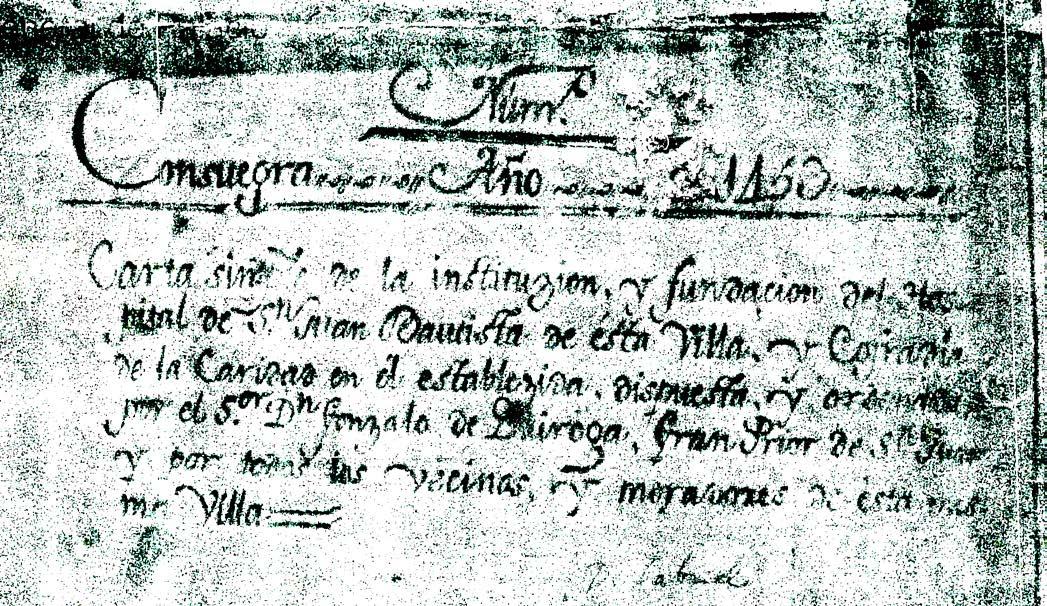 Num.º
Consuegra Año 1463
Carta de la instituzion, y fundacion del Hos
pital de S.n Juan Bautista de ésta Villa, y Cofradia
de la Caridad en él establezida, dispuesta, y ordenada
por el S.or D.n Gonzalo de Quiroga, Gran Prior de S.n Juan
y por todos los vecinos, y moradores de ésta mis
ma Villa